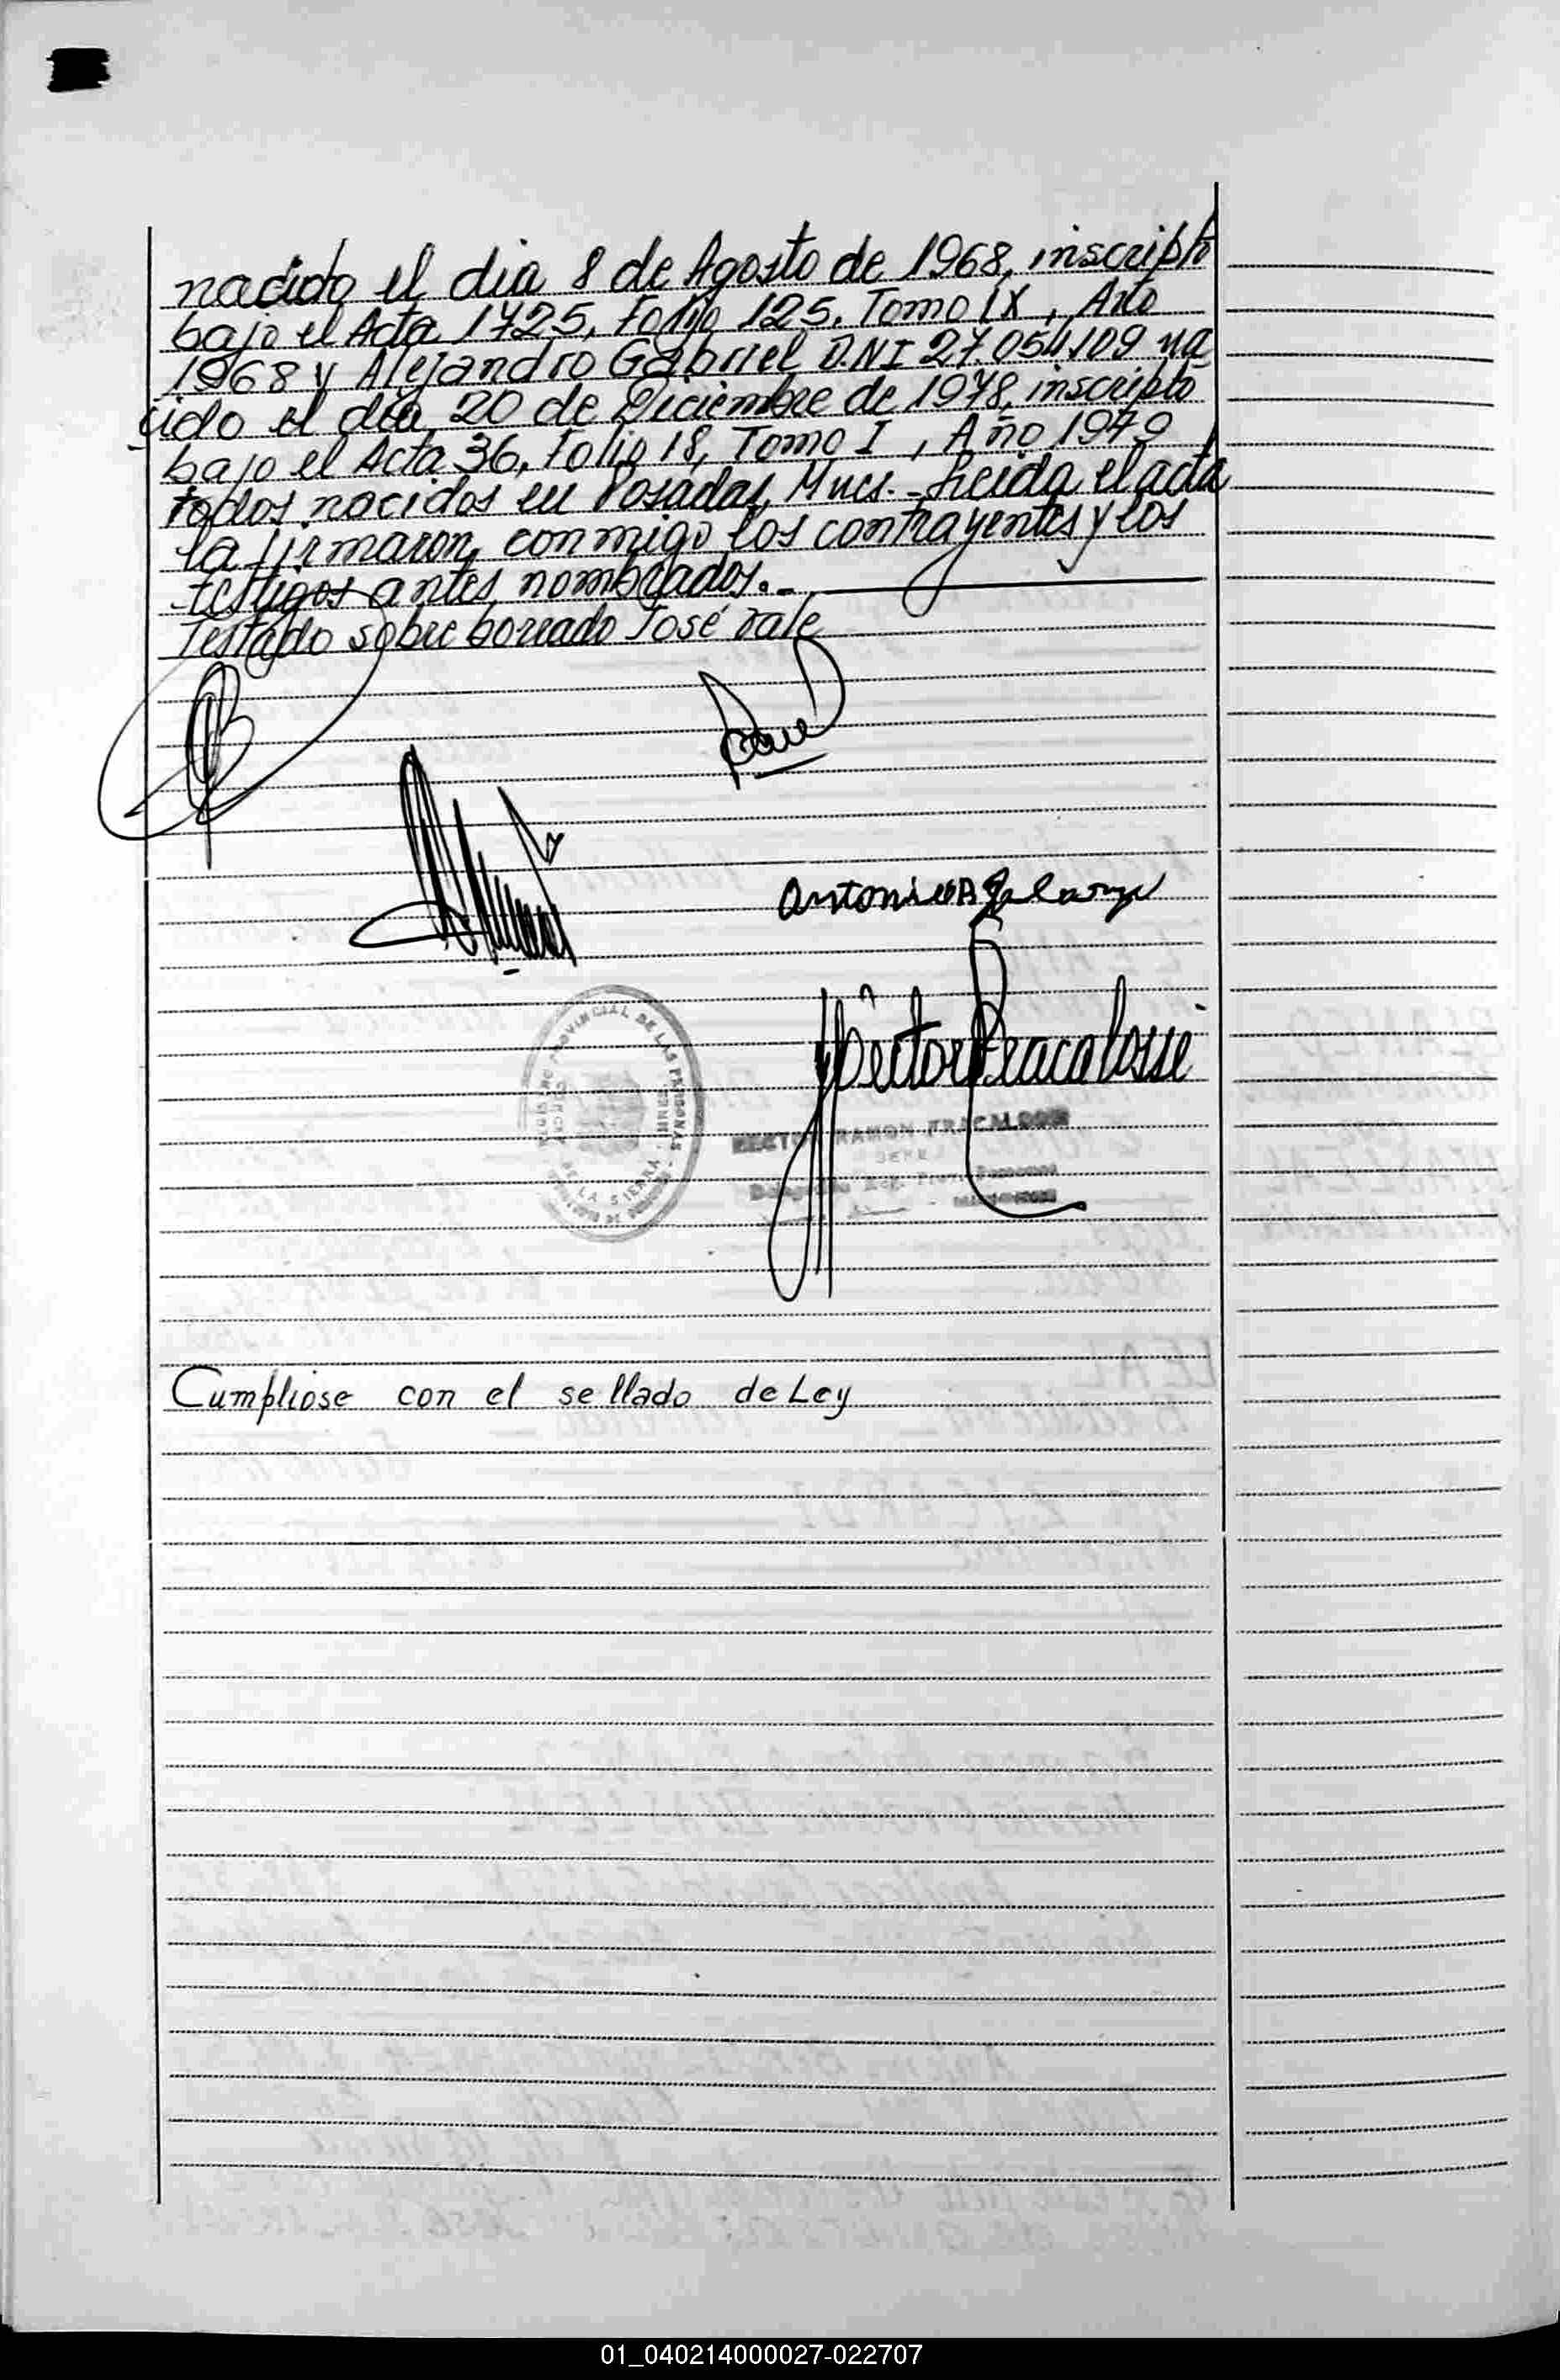 nacido el dia 8 de Agosto de 1968, inscripto
bajo el Acta 1725, Folio 125. Tomo IX, Año
1968 y Alejandro Gabriel D.N.I 27.054.109 na
cido el dia 20 de Diciembre de 1978, inscripto
bajo el Acta 36, Folio 18, Tomo I, Año 1979
todos nacidos en Posadas, Mnes.- Leida el acta
la firmaron conmigo los contrayentes y los
testigos antes nombrados.-
Testado sobre borrado José vale
Antonio
Hector Fracalossi
REGISTRO PROVINCIAL DE LAS PERSONAS - MNES.
DE LA SIERRA
HECTOR RAMON FRACALOSSI
JEFE
Cumpliose con el sellado de Ley
01_040214000027-022707